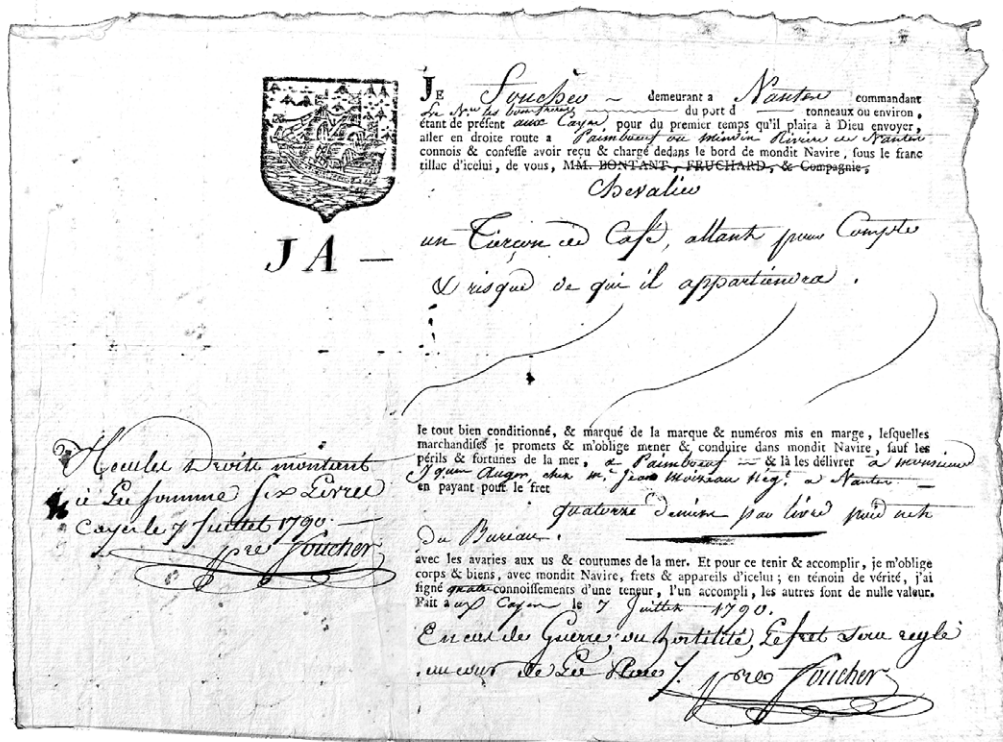 JE Foucher demeurant a Nantes commandant
Le N.re les bons freres du port d tonneaux ou environ,
étant de présent aux Cayes pour du premier temps qu'il plaira à Dieu envoyer,
aller en droite route a Paimboeuf ou Rivière de Nantes
connois & confesse avoir reçu & chargé dedans le bord de mondit Navire, sous le franc
tillac d'icelui, de vous, MM. BONTANT, FRUCHARD, & Compagnie,
Chevalier
un Tierçon de Café, allant pour Compte
& risque de qui il appartiendra.
JA —
le tout bien conditionné, & marqué de la marque & numéros mis en marge, lesquelles
marchandises je promets & m'oblige mener & conduire dans mondit Navire, sauf les
périls & fortunes de la mer, a Paimboeuf & là les délivrer à monsieur
Auger, chez m. Jean Moizeau neg.t a Nantes
en payant pour le fret
quatorze deniers par livre poid net
du Bureau.
avec les avaries aux us & coutumes de la mer. Et pour ce tenir & accomplir, je m'oblige
corps & biens, avec mondit Navire, frets & appareils d'icelui ; en témoin de vérité, j'ai
signé quatre connoissements d'une teneur, l'un accompli, les autres sont de nulle valeur.
Fait a aux Cayes le 7 Juillet 1790.
En cas de Guerre ou hostilité, Le fret sera reglé
au cours de Foucher
Droits montant
à La somme six Livres
Cayes le 7 Juillet 1790.
Foucher